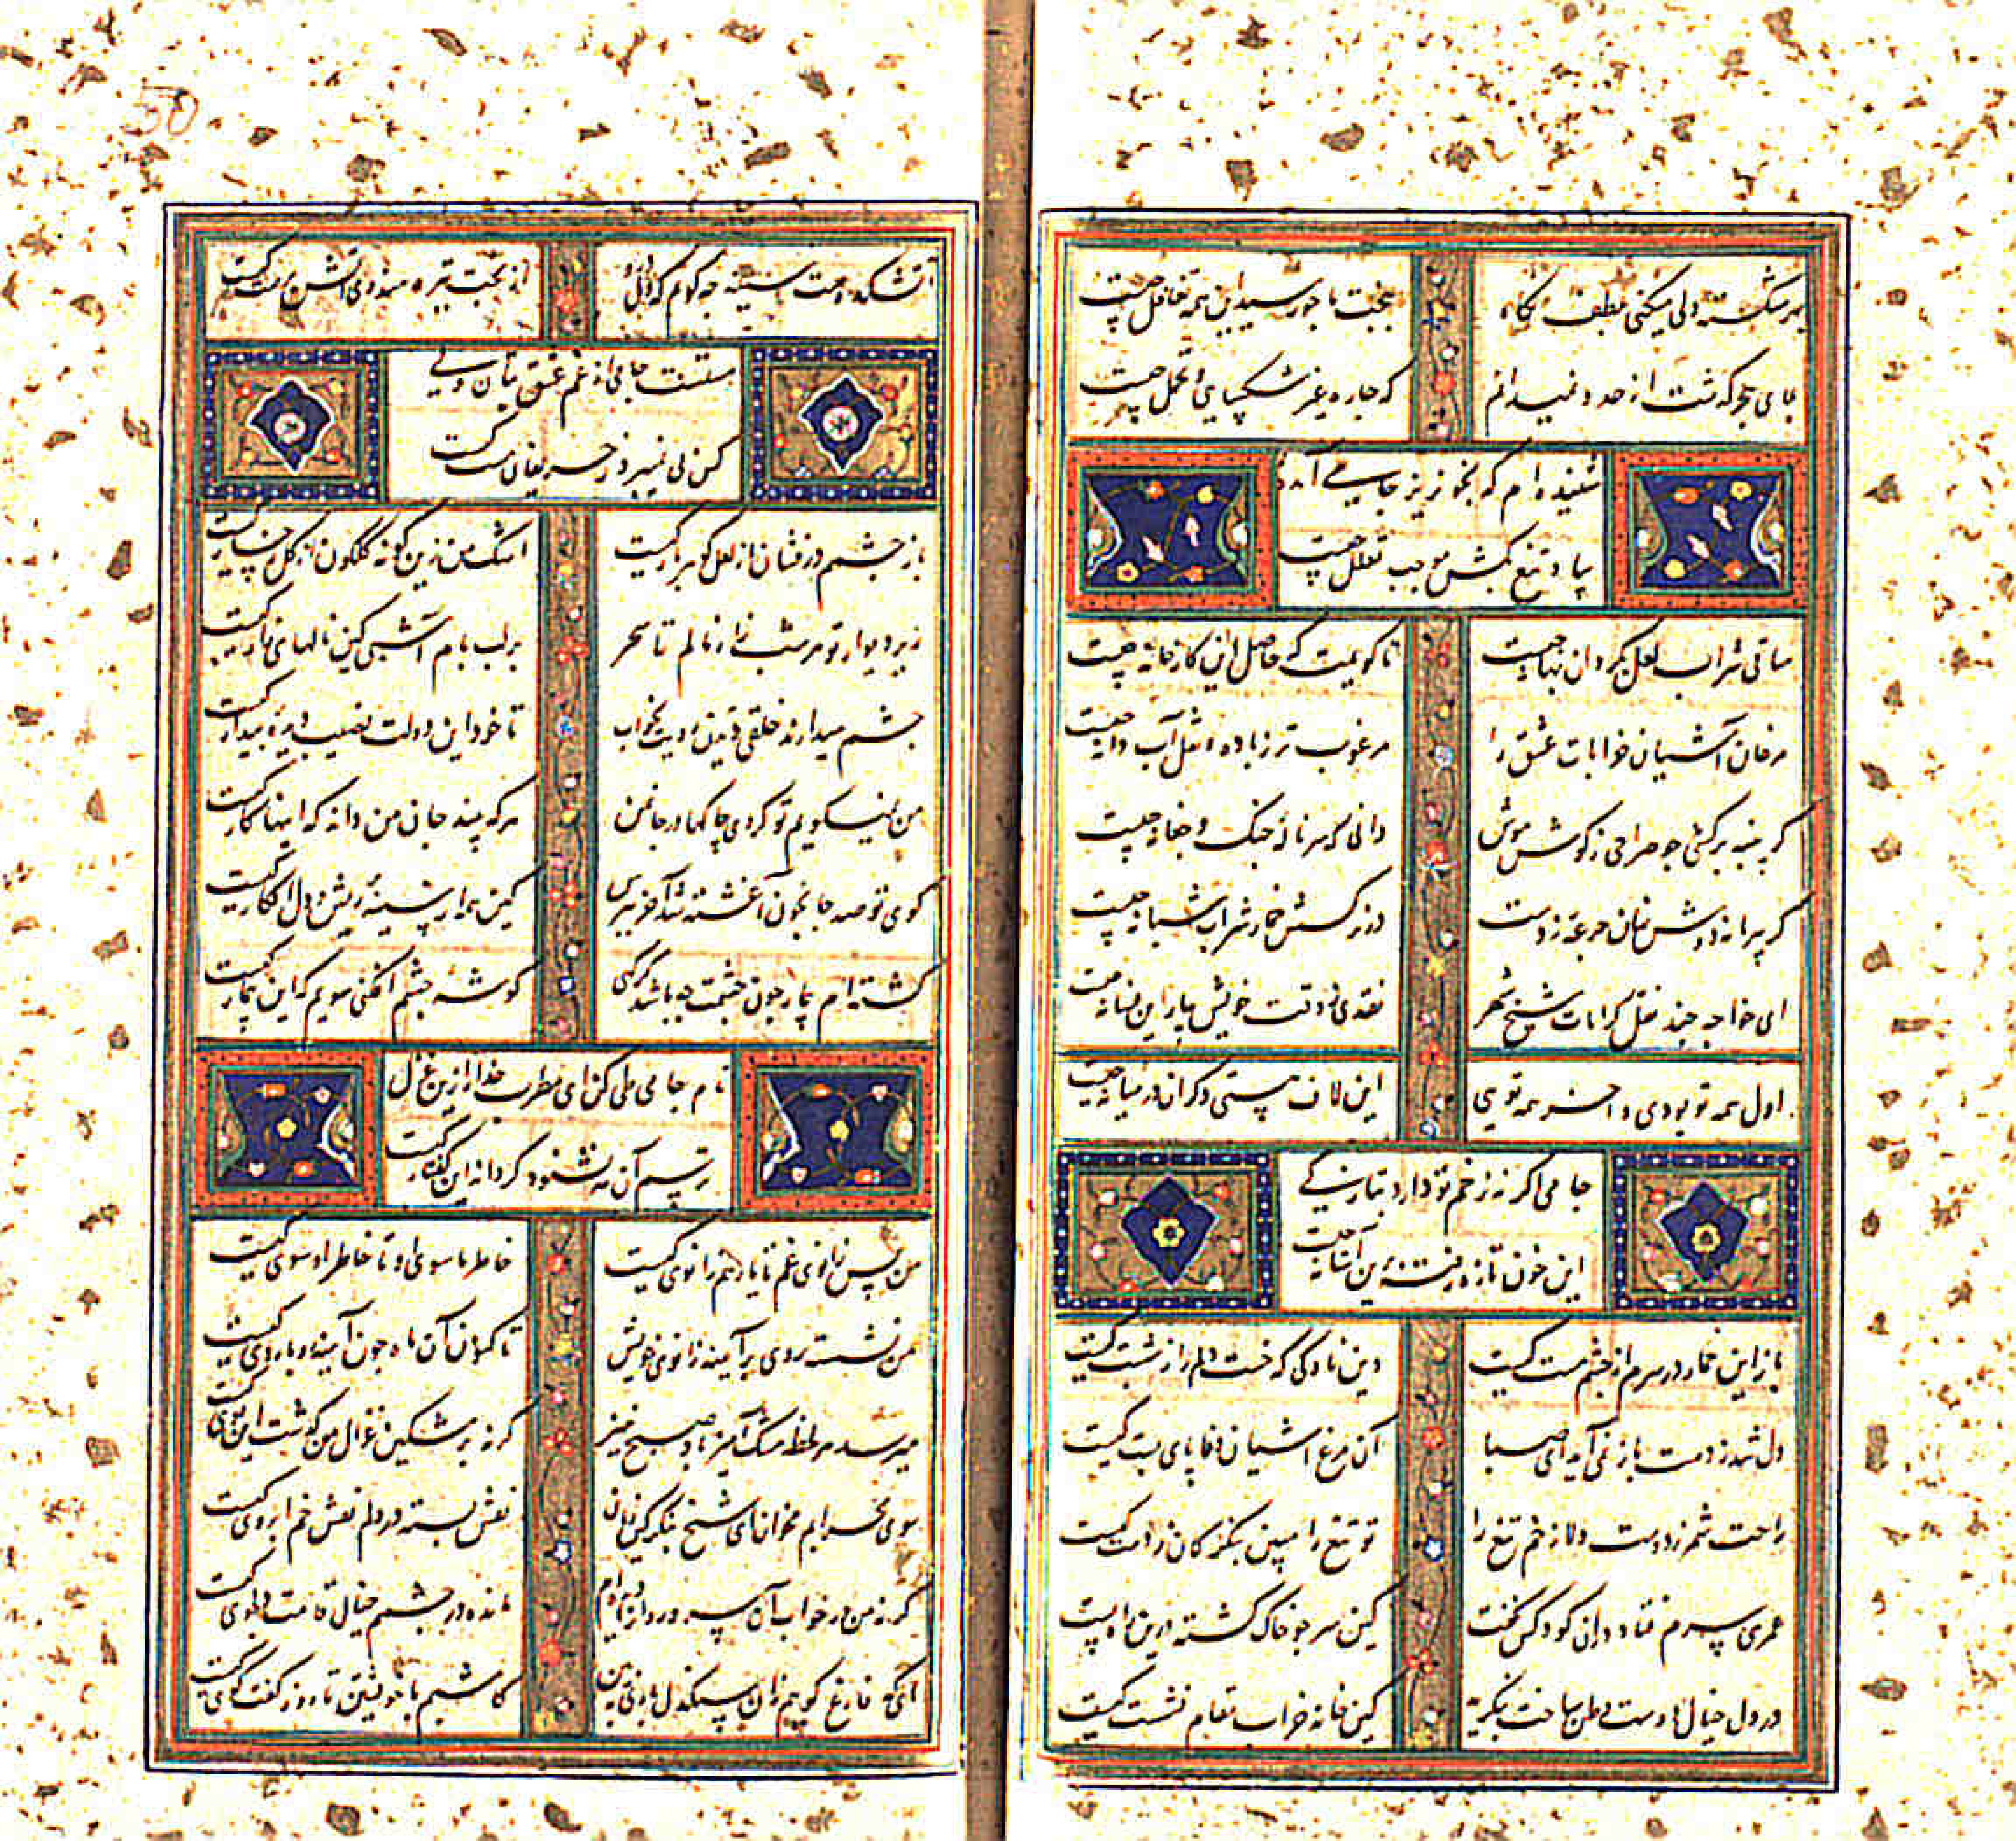 بهر شکسته دلی میکنی بلطف نگاه بجنبت ما چو رسید این همه تغافل چیست
بلای هجر گذشت از حد و نمیدانم که چاره غیر شکیبایی و تحمل چیست
شنیده‌ام که بخونریز جامی آمده
بیا و تیغ بکش موجب تعلل چیست
ساقی شراب لعل بگردان بهانه چیست تا گویمت که حاصل این کارخانه چیست
مرغان آشیان خرابات عشق را مرغوب‌تر ز باده و نقل آب و دانه چیست
گر پنبه برکشی چو صراحی ز گوش هوش دانی که سر ناله چنگ و چغانه چیست
گر پیر ما نه دوش نهان جرعه زدست در نرگسش خمار شراب شبانه چیست
ای خواجه چند نقل کرامات شیخ شهر نقدی ز وقت خویش بیار این فسانه چیست
اول همه تو بودی و آخر همه تویی این لاف هستی دگران در میانه چیست
جامی اگر نه زخم تو دارد بتارکی
این خون تازه ریخته بر آستانه چیست
باز این خمار در سرم از چشم مست کیست وین ناوکی که خست دلم را ز شست کیست
دل شد ز دست باز نمی آید ای صبا آن مرغ آشیان وفا پای بست کیست
راحت شمر ز دوست دلا زخم تیغ را تو تیغ را مبین بنگر کان ز دست کیست
عمری سرم فتاده دران کو و کس نگفت کین سر چو خاک گشته درین راه پست
در دل خیال دوست وطن ساخت بنگرید کین خانه خراب مقام نشست کیست
آتشکده است سینه چه گویم که داند از بخت تیره هندوی آتش پرست کیست
مستست جامی از غم عشق بتان ولی
کس پی نمیبرد ز حریفان که مست کیست
باز چشم درفشان از لعل گوهربار کیست اشک من زین گونه گلگون از گل رخسار کیست
زیر دیوار تو هر شب زار نالم تا سحر بر لب بام آ شبی کین نالهای زار کیست
چشم میدارند خلقی دیدن رویت بخواب تا خود این دولت نصیب دیده بیدار کیست
من نمیگویم تو کردی چاکها در جان من هر که بیند جان من داند که اینها کار کیست
کوی تو صد جا بخون آغشته شد آخر بپرس کین همه از سینه ریش و دل افگار کیست
گشته‌ام بیمار چون چشمت چه باشد گر گهی گوشه چشم افکنی سویم که این بیمار کیست
نام جامی طی کن ای مطرب خدا را زین غزل
ترسم آن مه نشنود گر داند این گفتار کیست
من پس زانوی غم تا یار همزانوی کیست خاطر ما سوی او تا خاطر او سوی کیست
من نشسته روی بر آیینه زانوی خویش تا کنون آن ماه چون آیینه رو با روی کیست
میرسد هر لحظه مشک آمیز باد صبح خیز گر نه بر مشکین غزال من گذشت این بوی کیست
سوی محرابم مخوان ای شیخ بنگر کین زمان نقش بسته در دلم نقش خم ابروی کیست
گر نه من در خواب آن سرو روان را دیده‌ام مانده در چشمم خیال قامت دلجوی کیست